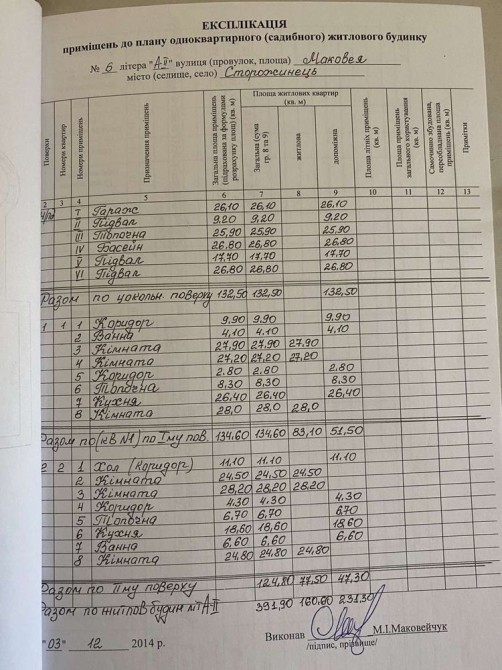 ЕКСПЛІКАЦІЯ
приміщень до плану одноквартирного (садибного) житлового будинку
№ 6 літера "А-ІІ" вулиця (провулок, площа) Маковея
місто (селище, село) Сторожинець
Поверхи
Номери квартир
Номери приміщень
Призначення приміщень
Загальна площа приміщень (підрахована за формулами розрахунку площ) (кв. м)
Площа житлових квартир (кв. м)
Загальна (сума гр. 8 та 9)
житлова
допоміжна
Площа літніх приміщень (кв. м)
Площа приміщень загального користування (кв. м)
Самочинно збудована, переобладнана площа приміщень (кв. м)
Примітки
2 3 4 5 6 7 8 9 10 11 12 13
I Гараж 26,10 26,10 26,10
II Підвал 9,20 9,20 9,20
III Топочна 25,90 25,90 25,90
IV Басейн 26,80 26,80 26.80
V Підвал 17,70 17,70 17.70
VI Підвал 26,80 26,80 26.80
Разом по цокольн. поверху 132,50 132,50 132,50
1 1 1 Коридор 9,90 9,90 9,90
2 Ванна 4,10 4.10 4.10
3 Кімната 27,90 27,90 27,90
4 Кімната 27,20 27,20 27,20
5 Коридор 2.80 2.80 2.80
6 Топочна 8,30 8,30 8,30
7 Кухня 26,40 26,40 26,40
8 Кімната 28,0 28,0 28,0
Разом по (кв №1) по І му пов. 134,60 134,60 83,10 51,50
2 2 1 Хол (коридор) 11,10 11,10 11,10
2 Кімната 24,50 24,50 24,50
3 Кімната 28,20 28,20 28,20
4 Коридор 4,30 4,30 4,30
5 Топочна 6,70 6,70 6,70
6 Кухня 18,60 18,60 18,60
7 Ванна 6,60 6,60 6,60
8 Кімната 24,80 24,80 24,80
Разом по ІІ му поверху 124,80 77,50 47,30
Разом по житлов будин літ А-ІІ 391,90 160,60 231,30
"03" 12 2014 р.
Виконав М.І.Маковейчук
/підпис, прізвище/